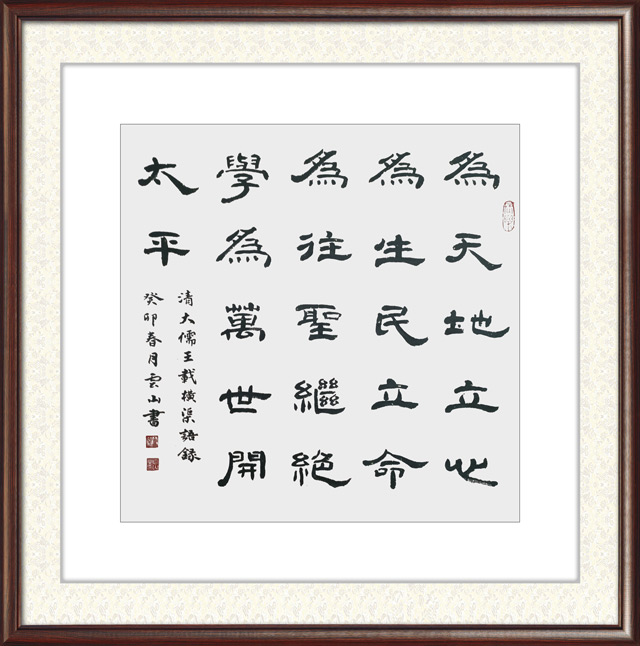 為天地立心
為生民立命
為往聖繼絕
學為萬世開
太平
清大儒王載橫渠語錄
癸卯春月雲山書